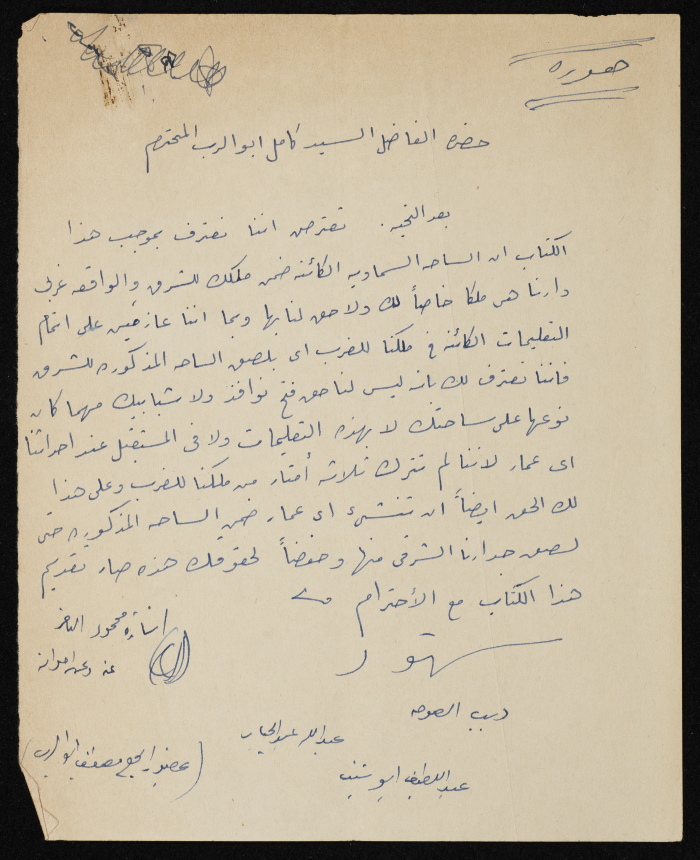 صورة
حضرة الفاضل السيد كامل ابو الرب المحترم
بعد التحية. نعترف بموجب هذا
الكتاب ان الساحه السماويه الكائنه ضمن ملكك للشرق والواقعه غربي
دارنا هي ملكا خاصاً لك ولا حق لنا بها وبما اننا عازمين على اتمام
التعليمات الكائنة في ملكنا للغرب اي بلصق الساحه المذكوره للشرق
فاننا نعترف لك بانه ليس لنا حق فتح نوافذ ولا شبابيك مهما كان
نوعها على ساحتك لا بهذه التعليمات ولا في المستقبل عند احداثنا
اي عمار لاننا لم نترك ثلاثة أمتار من ملكنا للغرب وعلى هذا
لك الحق ايضاً ان تنشئ اي عمار ضمن الساحه المذكوره حتى
لصق جدارنا الشرقي منها وحفظاً لحقوقك هذه صار تقديم
هذا الكتاب مع الأحترام
محمود
عنه وعن اخوانه
شهود
ديب
عبدالله عبد الجبار
عبد اللطيف ابو
مصطفى ابو الرب